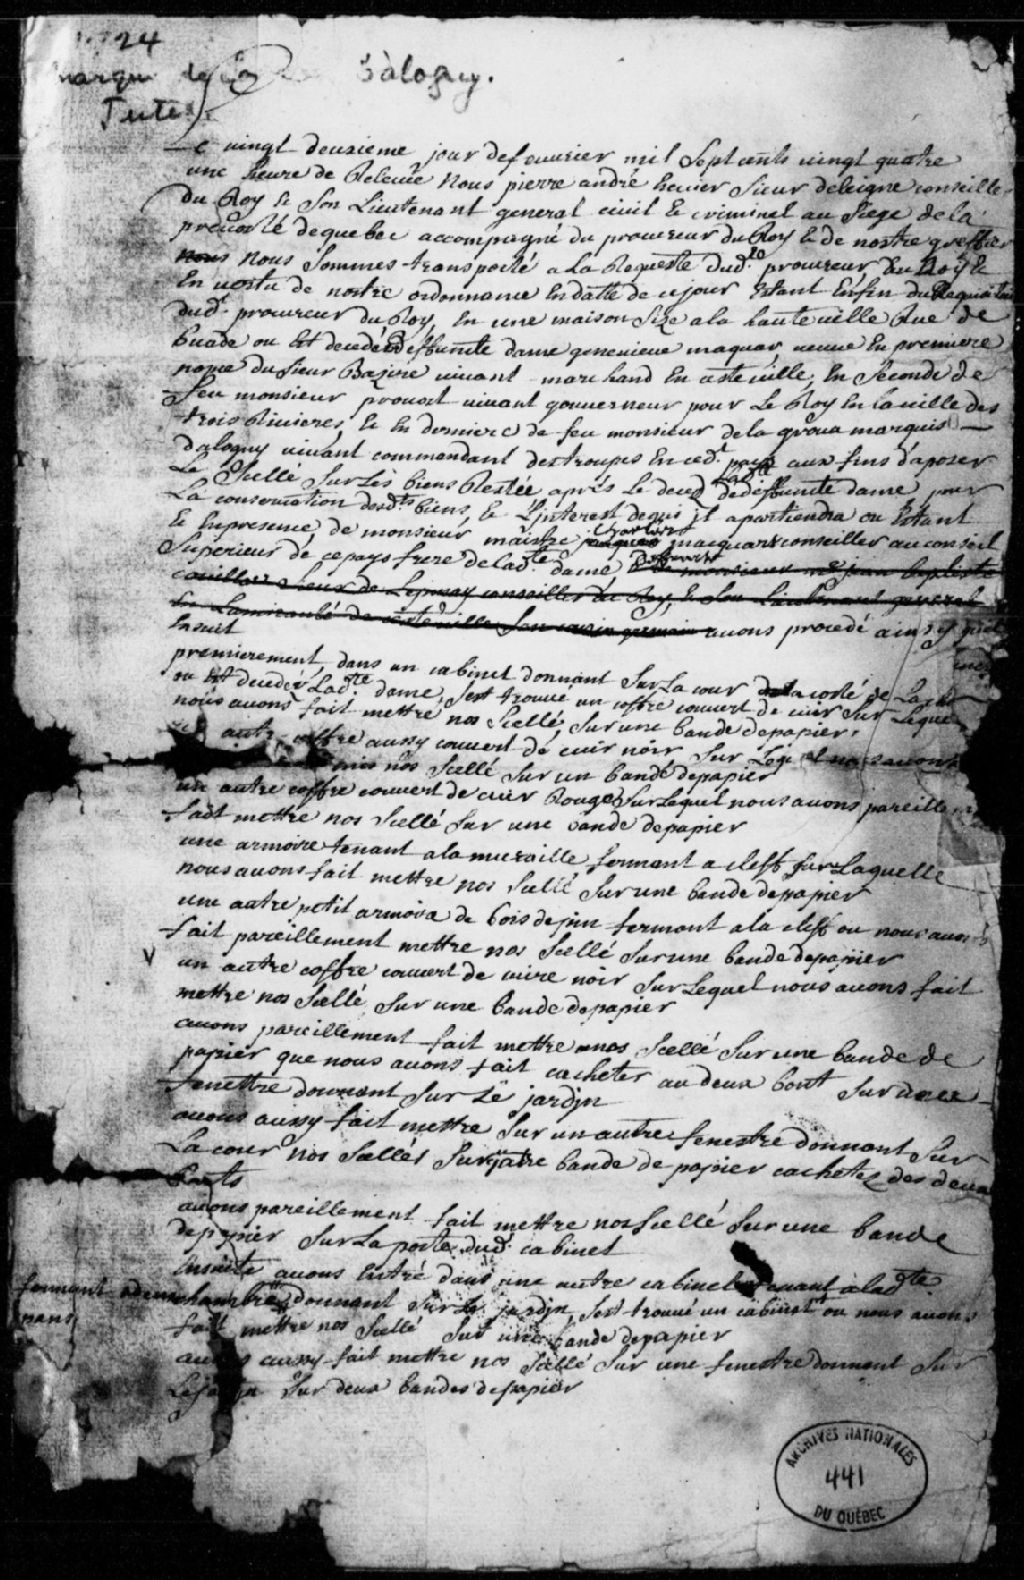 1724
marquis de la
Dalogny.
Ce vingt deuxieme jour de feuvrier mil sept cents vingt quatre
une heure de Relevée Nous pierre andré Sieur deleigne conseiller
du Roy & Son Lieutenant general civil & criminel au Siege de la
prevosté de quebec accompagné du procureur du Roy & de nostre greffier
nous Nous Sommes transporté a la Requeste dud. procureur du Roy &
En vertu de nostre ordonnance En datte de ce jour Estant Enfin du Requisitoire
dud. procureur du Roy, En une maison Size a la haute ville Rue de
buade ou Est decedée deffuncte dame genevieve maquar veuve En premiere
nopce du Sieur Bazire vivant marchand En cette ville, En Seconde de
feu monsieur provost vivant gouverneur pour Le Roy En la ville des
trois Rivieres, & En derniere de feu monsieur dela groua marquis
dalogny vivant commandant des troupes En ced. pays aux fins d'aposer
Le Scellé Sur Les biens Restée aprés Le deced de lad.te deffuncte dame pour
La conservation desd.ts biens, & L'interest de qui il apartiendra ou Estant
& En presence, de monsieur maistre Charles macquart conseiller au conseil
Superieur de ce pays frere de lad.te dame deffuncte & de monsieur me jean baptiste
couillar Sieur de Lepinay conseiller du Roy, & Son Lieutenant general
En Lamirauté de cette ville Son cousin germain avons procedé ainsy quil
Ensuit
premierement, dans un cabinet donnant Sur La cour de la costé de La
ou Est decedée Lad.te dame, Sest trouvé un coffre couvert de cuir Sur Lequel
nous avons fait mettre nos Scellé, Sur une bande de papier.
autre coffre aussy couvert de cuir noir Sur Lequel nous avons
mis nos Scellé Sur un bande de papier
un autre coffre couvert de cuir Rouge Sur Lequel nous avons pareille
fait mettre nos Scellé Sur une bande de papier
une armoire tenant a la muraille fermant a cleff Sur Laquelle
nous avons fait mettre nos Scellé Sur une bande de papier
une autre petit armoire de bois de pin fermant a la cleff ou nous avons
fait pareillement mettre nos Scellé Sur une bande de papier
un autre coffre couvert de cuire noir Sur Lequel nous avons fait
mettre nos Scellé, Sur une bande de papier
avons pareillement fait mettre nos Scellé Sur une bande de
papier que nous avons fait cacheter au deux bout Sur une
fenettre donnant Sur Le jardin
avons aussy fait mettre Sur un autre fenestre donnant Sur
La cour nos Scellés Sur bande de papier cachetez des deux
Bouts
avons pareillement fait mettre nos Scellé Sur une bande
de papier Sur La porte dud. cabinet
Ensuite avons Entré dans une autre cabinet tenant a lad.te
chambre donnant Sur Le jardin, Sest trouvé un cabinet ou nous avons
fermant a deux
pans
fait mettre nos Scellé Sur une bande de papier
avons aussy fait mettre nos Scellé Sur une fenestre donnant Sur
Le jardin Sur deux bandes de papier
ARCHIVES NATIONALES
441
DU QUÉBEC